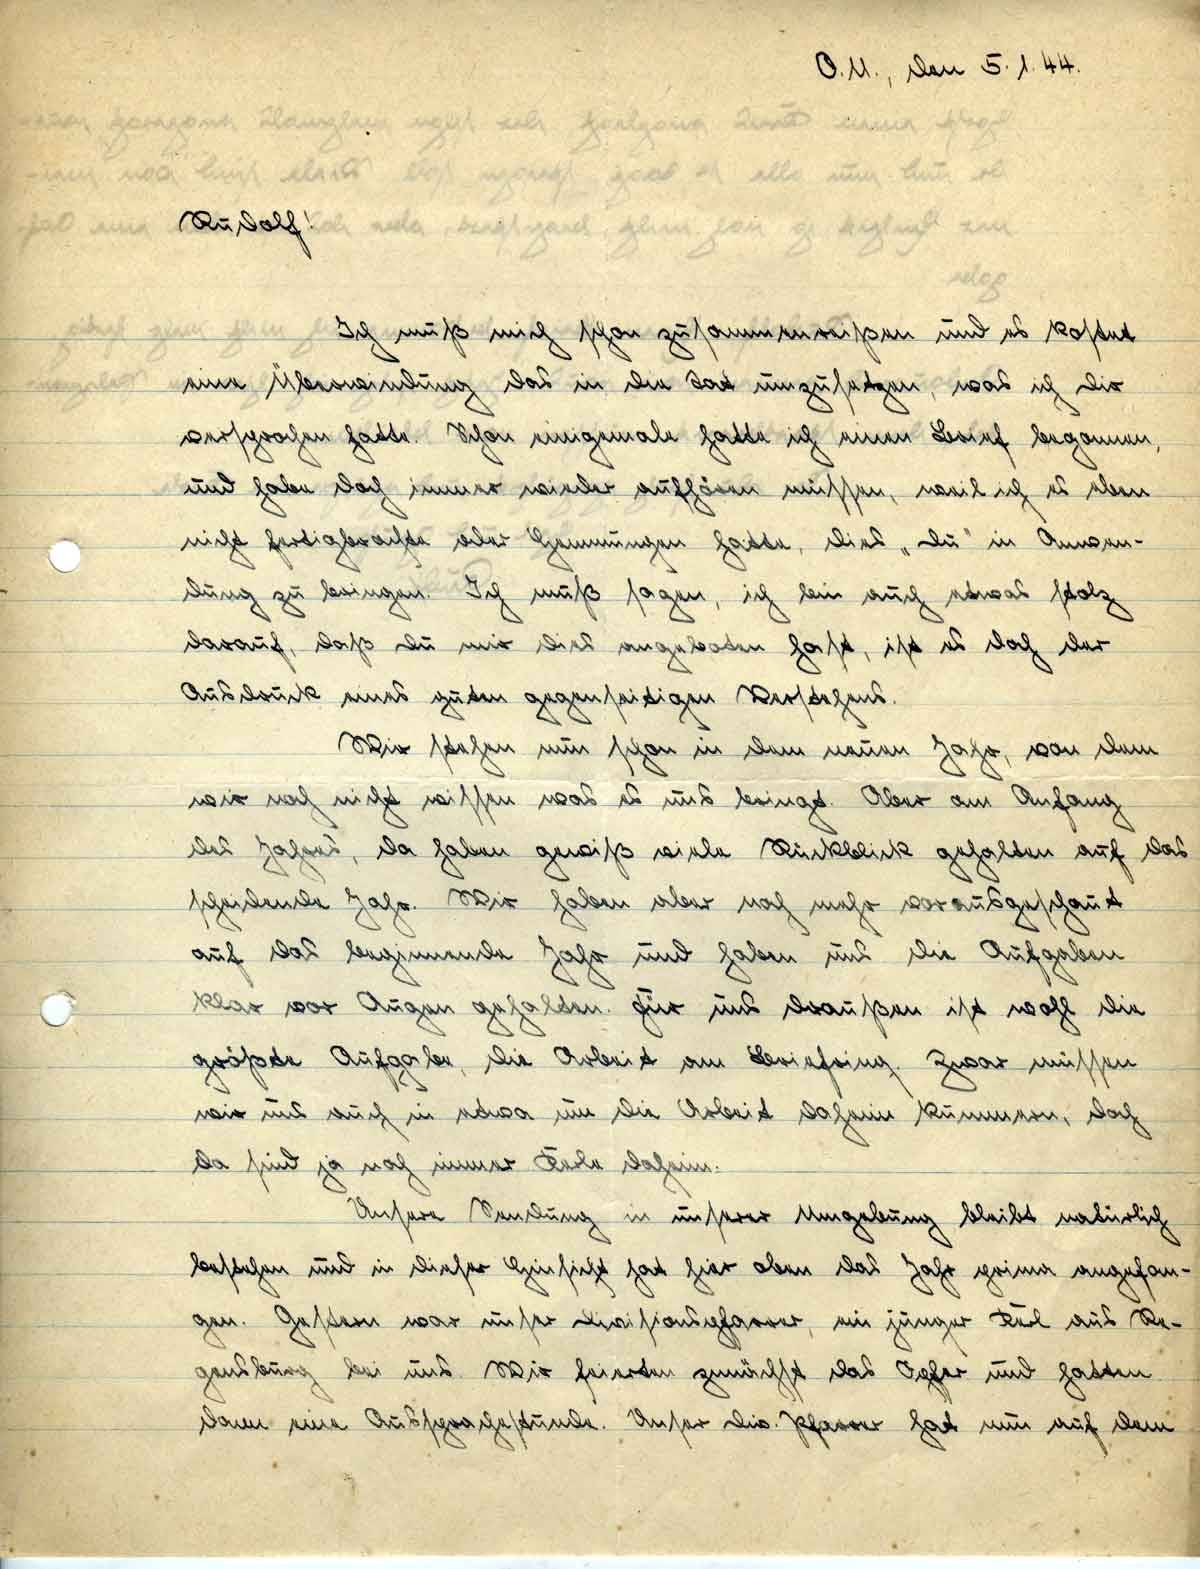 O.U., den 5.1.44.
Rudolf!
Ich muß mich schon zusammenreißen und es kostet
eine Überwindung das in die Tat umzusetzen, was ich dir
versprochen hatte. Schon einigemale hatte ich einen Brief begonnen,
und habe doch immer wieder aufhören müssen, weil ich es eben
nicht fertigbrachte oder Hemmungen hatte, dies „Du" in Anwen-
dung zu bringen. Ich muß sagen, ich bin auch etwas stolz
darauf, daß du mir dies angeboten hast, ist es doch der
Ausdruck eines guten gegenseitigen Verstehens.
Wir stehen nun schon in dem neuen Jahr, von dem
wir noch nicht wissen was es uns bringt. Aber am Anfang
des Jahres, da haben gewiß viele Rückblick gehalten auf das
scheidende Jahr. Wir haben aber noch mehr vorausgeschaut
auf das beginnende Jahr und haben uns die Aufgaben
klar vor Augen gehalten. Für uns draußen ist wohl die
größte Aufgabe, die Arbeit am Briefring. Zwar müssen
wir uns auch in etwa um die Arbeit daheim kümmern, doch
da sind ja noch immer Kerle daheim.
Unsere Sendung in unserer Umgebung bleibt natürlich
bestehen und in dieser Hinsicht hat hier oben das Jahr prima angefan-
gen. Gestern war unser Divisionspfarrer, ein junger Kerl aus Re-
gensburg bei uns. Wir feierten zunächst das Opfer und hatten
dann eine Aussprachestunde. Unser Div. Pfarrer hat nun auf dem